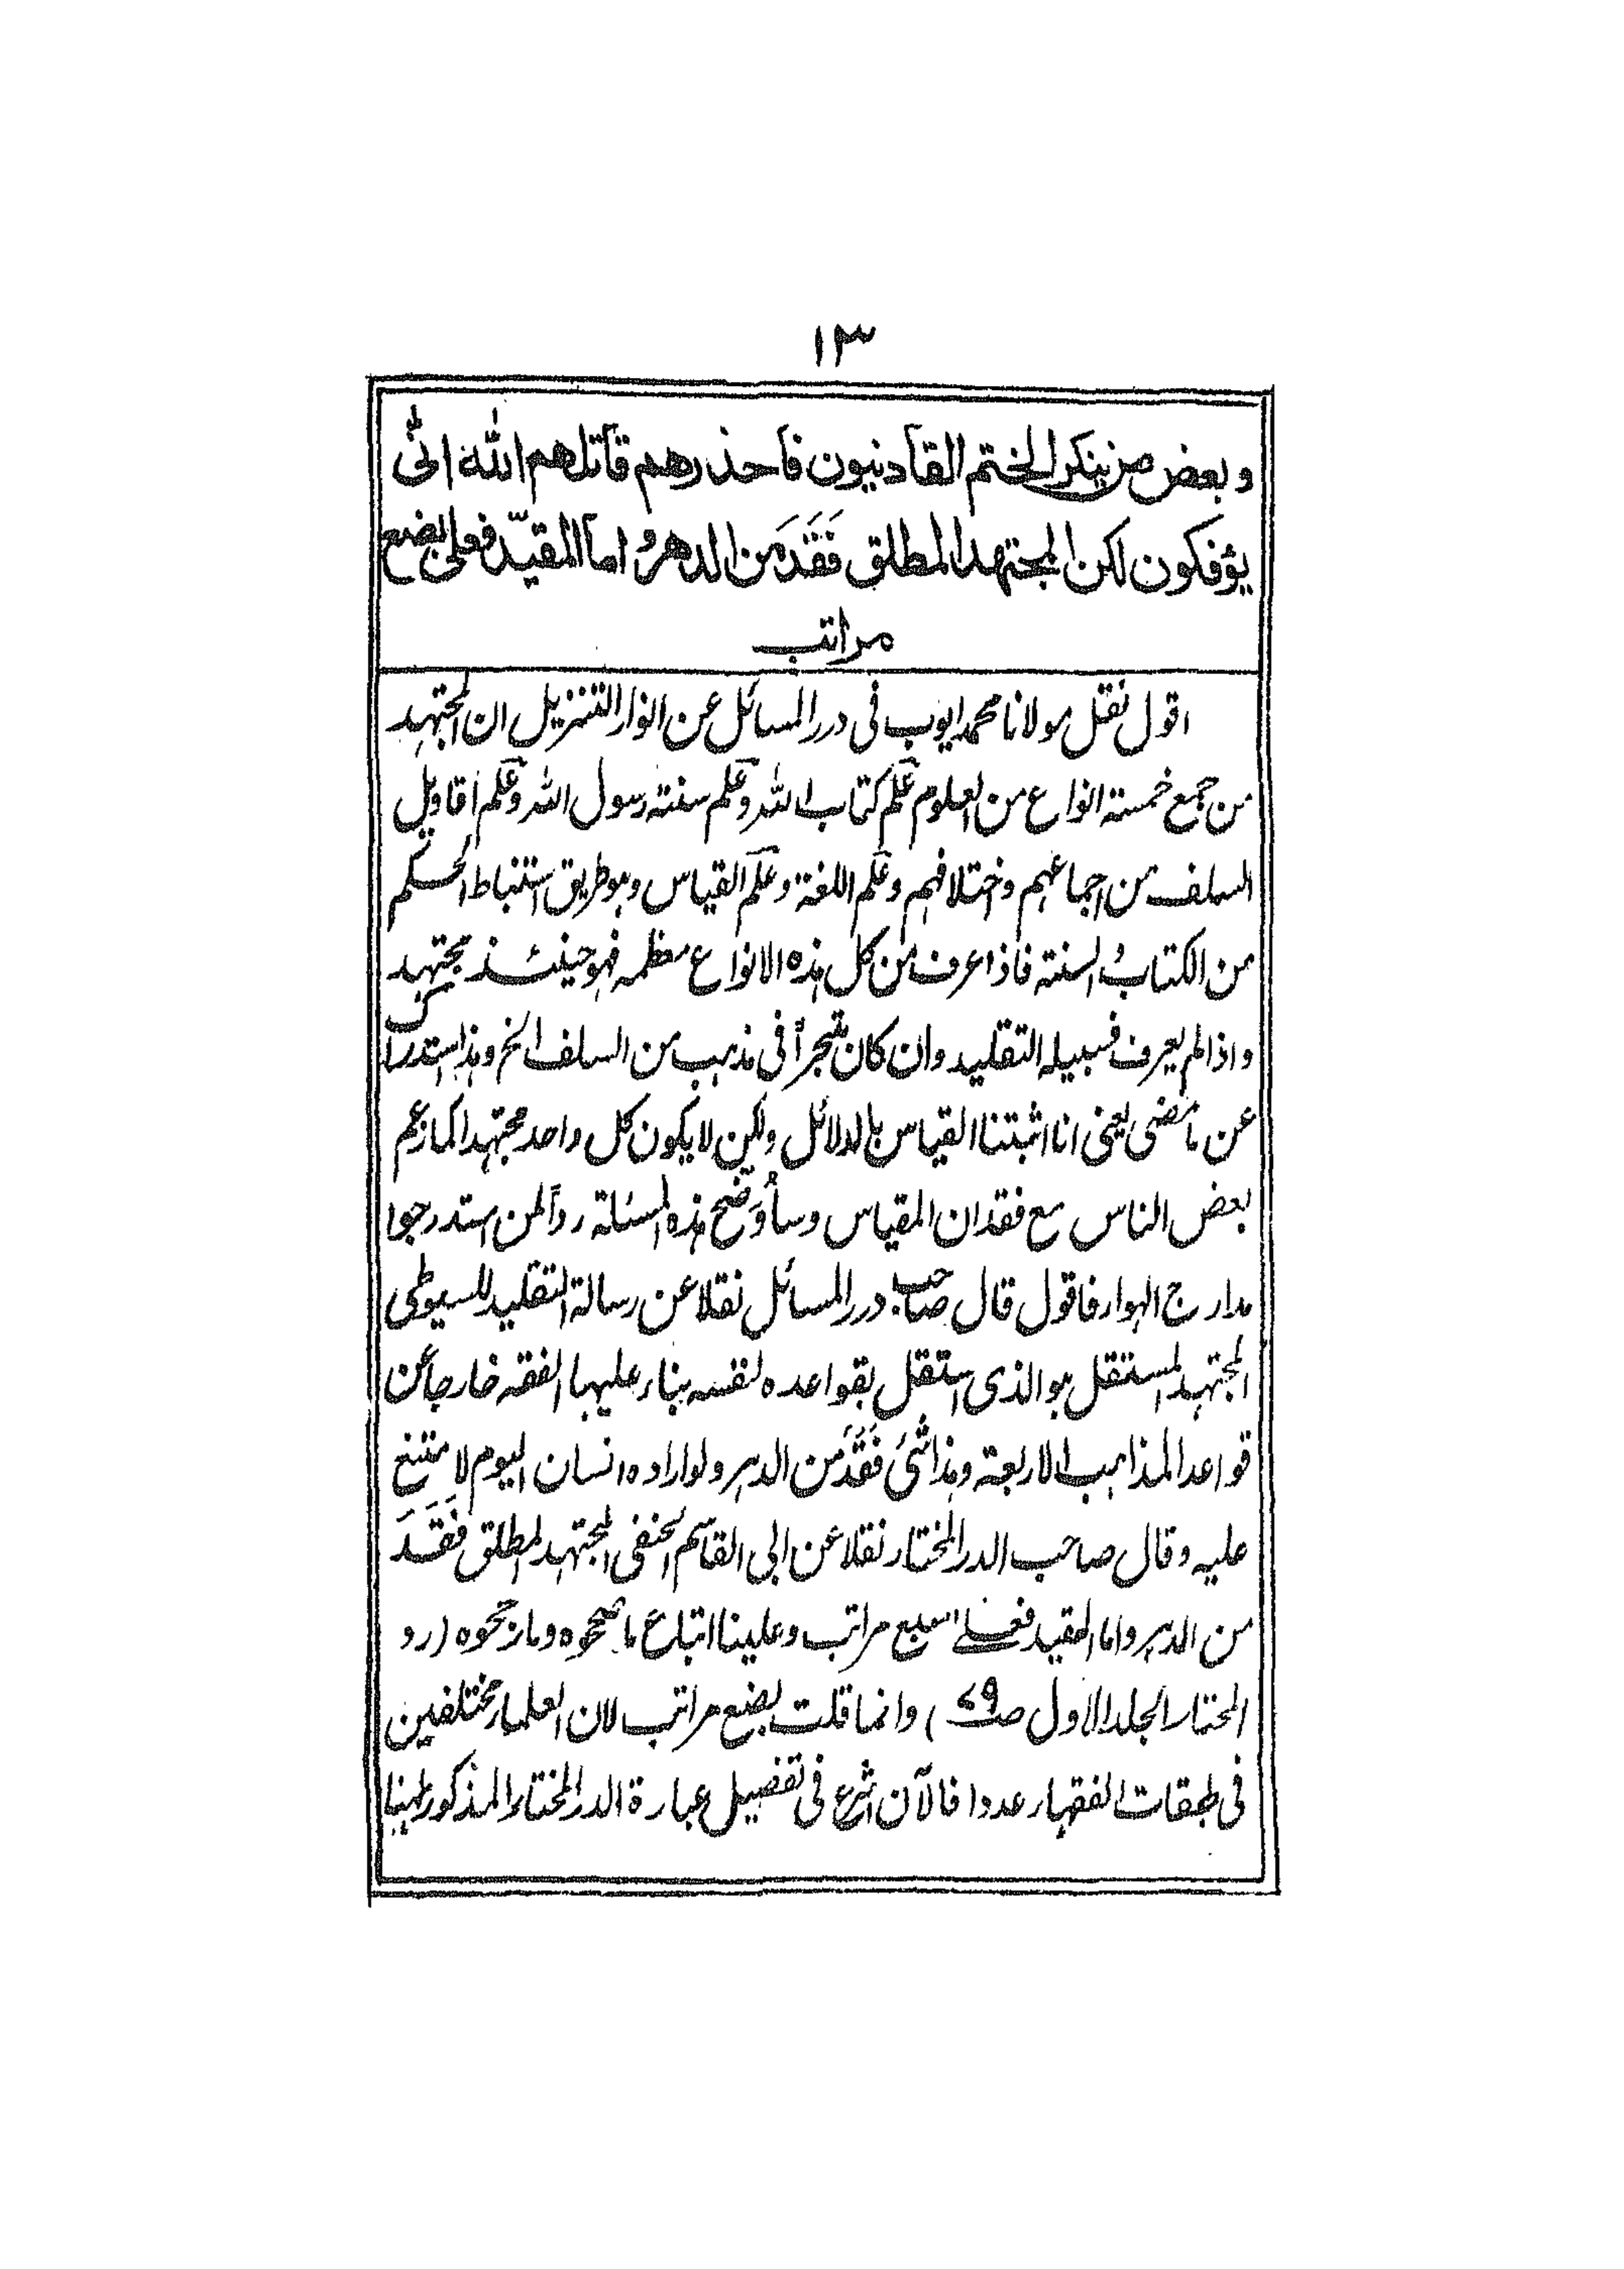 ١٣
وبعض من ينكر الختم القادنيون فاحذرهم قاتلهم الله انّٰى
يؤفكون لكن المجتهد المطلق فَقَدَ من الدهر و اما المقيّد فعلى بضع
مراتب
اقول نقل مولانا محمد ايوب فى درر المسائل عن انوار التنزيل ان المجتهد
من جمع خمسته انواع من العلوم علم كتاب الله وعلم سنته رسول الله وعلم اقاويل
السلف من اجماعهم وختلافهم وعلم اللغة وعلم القياس وهو طريق استنباط الحكم
من الكتاب و السنته فاذا عرف من كل هذه الانواع معظمه فهو حينئذ مجتهد
واذا لم يعرف فسبيله التقليد وان كان متبحراً فى مذهب من السلف الخ وهذا استدراك
عن ما مضى يعنى انا اثبتنا القياس بالدلائل ولكن لا يكون كل واحد مجتهدا كما زعم
بعض الناس مع فقدان المقياس وسأوضح هذه المسئلة رداً لمن استدرجوا
مدارج الهواء فاقول قال صاحب درر المسائل نقلا عن رسالة التقليد للسيوطى
المجتهد المستقل هو الذى استقل بقواعده لنفسه بناء عليها الفقه خارجا عن
قواعد المذاهب الاربعة وهذا شئ فَقَدَ من الدهر ولو اراده انسان اليوم لامتنع
عليه وقال صاحب الدر المختار نقلا عن ابى القاسم الحنفى المجتهد المطلق فَقَدَ
من الدهر واما المقيد فعلے سبع مراتب وعلينا اتباع ما صححوه وما رجحوه (رد
المختار الجلد الاول صـ ٧٩) وانما قلت بضع مراتب لان العلماء مختلفين
فى طبقات الفقهاء عددا فالآن اشرع فى تفصيل عبارة الدر المختار المذكور ههنا